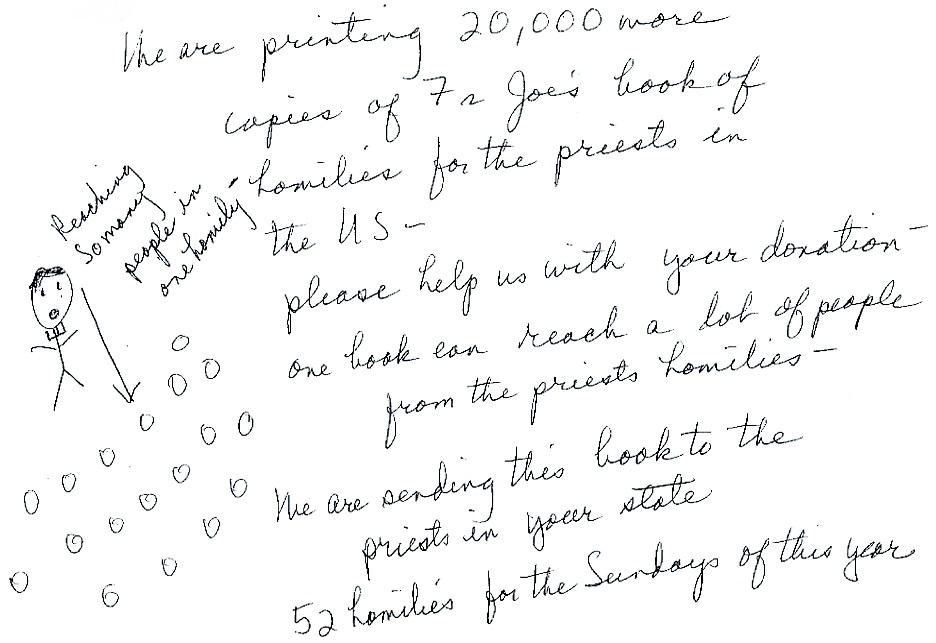 We are printing 20,000 more
copies of Fr Joe's book of
homilies for the priests in
the US -
please help us with your donation -
one book can reach a lot of people
from the priests homilies -
We are sending this book to the
priests in your state
52 homilies for the Sundays of this year
Reaching
so many
people in
one homily